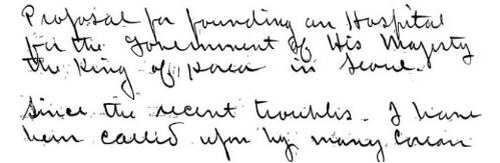 Proposal for founding an Hospital
for the Government of His Majesty
the King of Korea in Seoul.
Since the recent troubles. I have
been called upon by many Corean